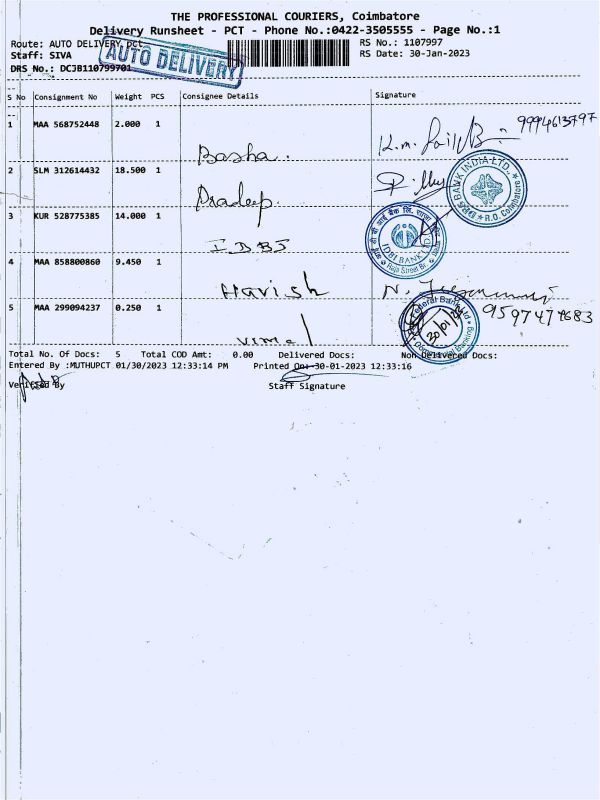 THE PROFESSIONAL COURIERS, Coimbatore
Delivery Runsheet - PCT - Phone No.:0422-3505555 - Page No.:1
Route: AUTO DELIVERY pct
RS No.: 1107997
Staff: SIVA
RS Date: 30-Jan-2023
DRS No.: DCJB110799701
AUTO DELIVERY
S No Consignment No Weight PCS Consignee Details Signature
1 MAA 568752448 2.000 1 Basha 9994613797
2 SLM 312614432 18.500 1 Pradeep
BANK INDIA LTD. R.O. Coimbatore
3 KUR 528775385 14.000 1 IDBI
आई डी बी आई बैंक लि.
IDBI BANK LTD.
4 MAA 858800860 9.450 1 Harish
5 MAA 299094237 0.250 1 Vimal 9597474683
Federal Bank Ltd
30/01/23
Total No. Of Docs: 5 Total COD Amt: 0.00 Delivered Docs: Non Delivered Docs:
Entered By :MUTHUPCT 01/30/2023 12:33:14 PM Printed On:-30-01-2023 12:33:16
Verified By Staff Signature